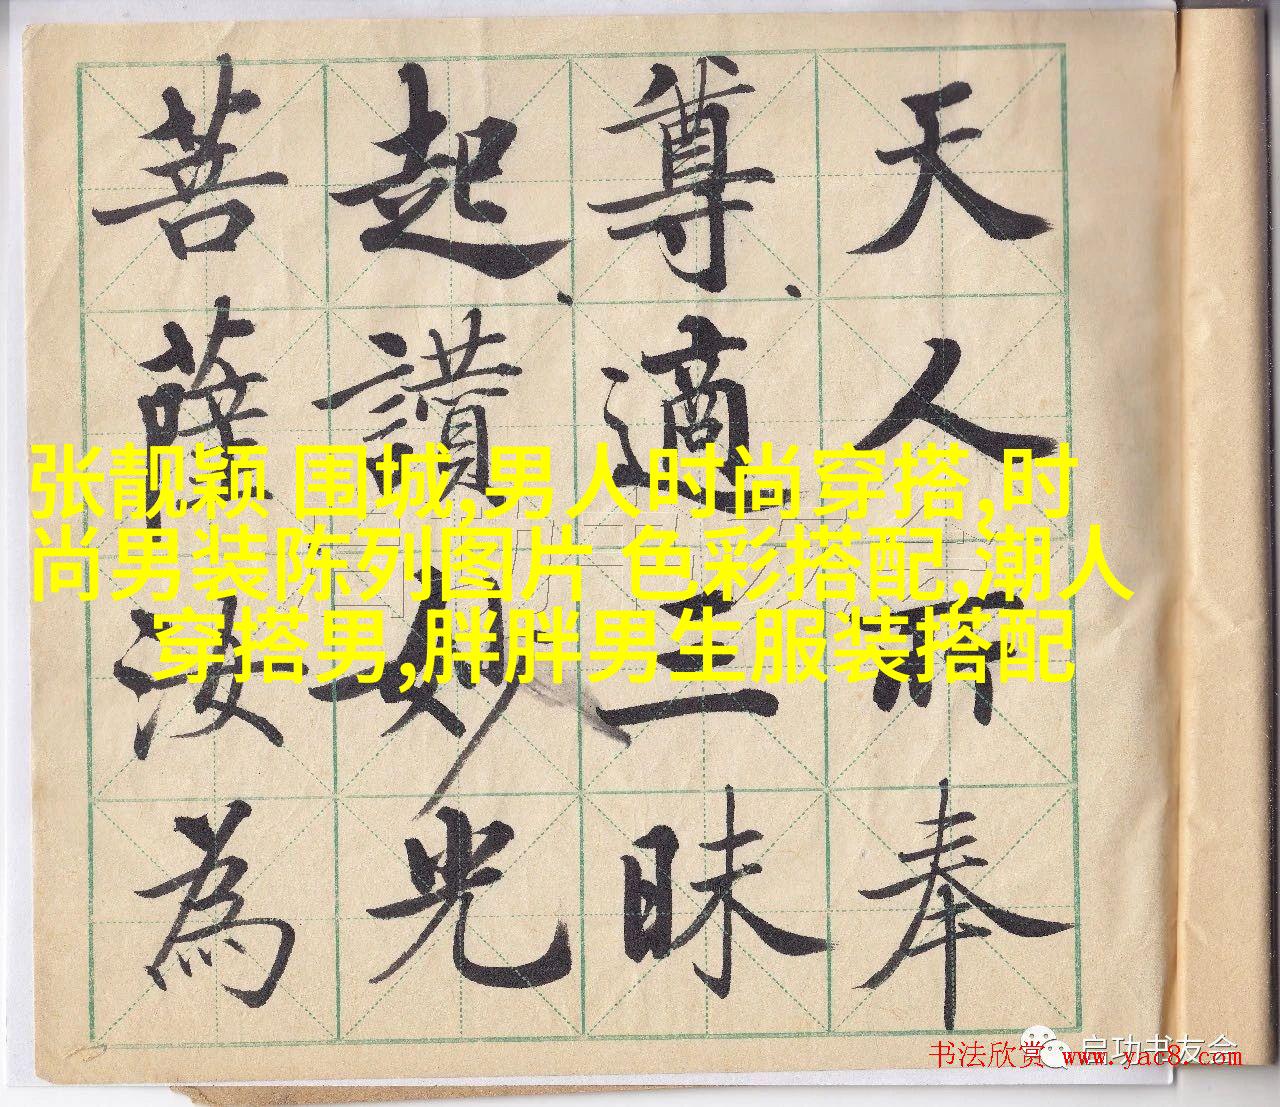 天人而奉
尊適三昧
起讚妙光
菩薩汝為
张靓颖 围城,男人时尚穿搭,时
尚男装陈列图片 色彩搭配,潮人
穿搭男,胖胖男生服装搭配
启功书友会
书法欣赏 www.yac8.com